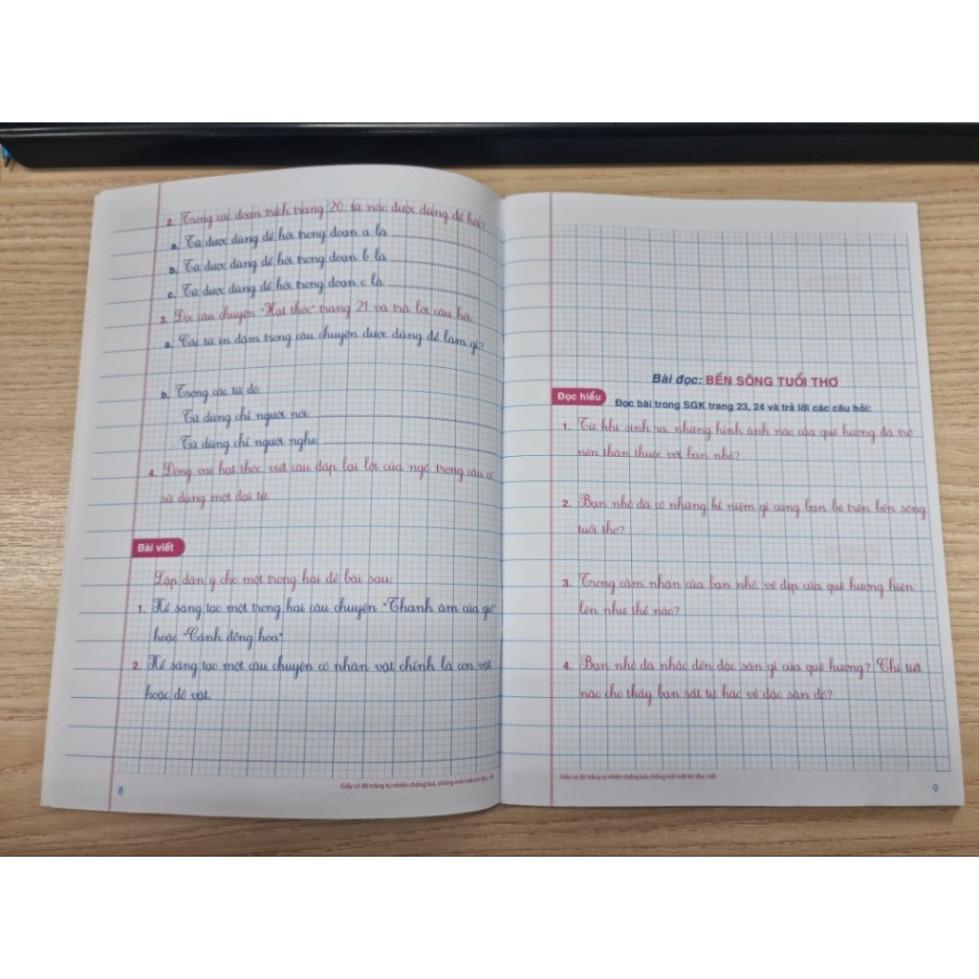 2. Trong các đoạn trích trang 20, từ nào được dùng để hỏi?
a. Từ được dùng để hỏi trong đoạn a là
b. Từ được dùng để hỏi trong đoạn b là
c. Từ được dùng để hỏi trong đoạn c là
3. Đọc câu chuyện "Hạt thóc" trang 21 và trả lời câu hỏi
a. Các từ in đậm trong câu chuyện được dùng để làm gì?
b. Trong các từ đó:
Từ dùng chỉ người nói:
Từ dùng chỉ người nghe:
4. Đóng vai hạt thóc, viết câu đáp lại lời của ngô, trong câu có
sử dụng một đại từ.
Bài viết
Lập dàn ý cho một trong hai đề bài sau:
1. Kể sáng tạo một trong hai câu chuyện "Thanh âm của gió"
hoặc "Cánh đồng hoa"
2. Kể sáng tạo một câu chuyện có nhân vật chính là con vật
hoặc đồ vật.
Giấy có độ trắng tự nhiên chống loá, chống mỏi mắt khi đọc, viết
8
Bài đọc: BẾN SÔNG TUỔI THƠ
Đọc hiểu
Đọc bài trong SGK trang 23, 24 và trả lời các câu hỏi:
1. Từ khi sinh ra, những hình ảnh nào của quê hương đã trở
nên thân thuộc với bạn nhỏ?
2. Bạn nhỏ đã có những kỉ niệm gì cùng bạn bè trên bến sông
tuổi thơ?
3. Trong cảm nhận của bạn nhỏ, vẻ đẹp của quê hương hiện
lên như thế nào?
4. Bạn nhỏ đã nhắc đến đặc sản gì của quê hương? Chi tiết
nào cho thấy bạn rất tự hào về đặc sản đó?
Giấy có độ trắng tự nhiên chống loá, chống mỏi mắt khi đọc, viết
9